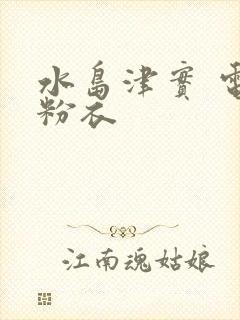 水島津實
粉衣
江南魂姑娘